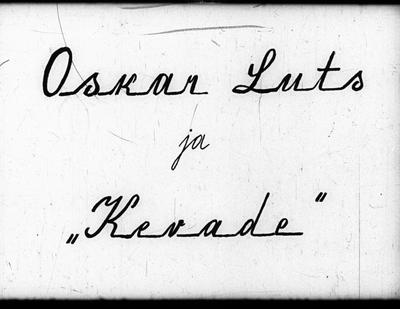 Oskar Luts
ja
„Kevade“